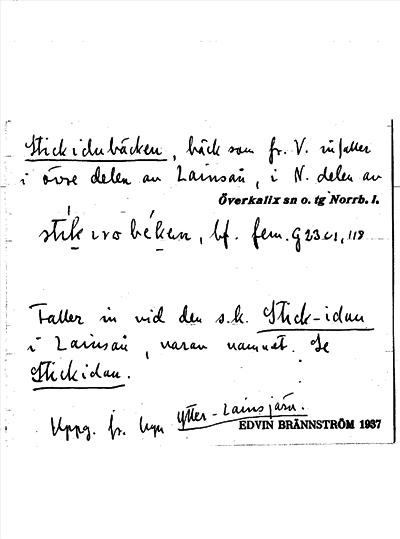 Stickidubäcken, bäck som fr. V. infaller
i övre delen av Lainsån, i N. delen av
Överkalix sn o. tg Norrb. l.
bf. fem. G 23 c1, 118
Faller in vid den s.k. Stick-idan
i Lainsån, varav namnet. Se
Stickidan.
Uppg. fr. byn Ytter-Lainsjärn.
EDVIN BRÄNNSTRÖM 1937